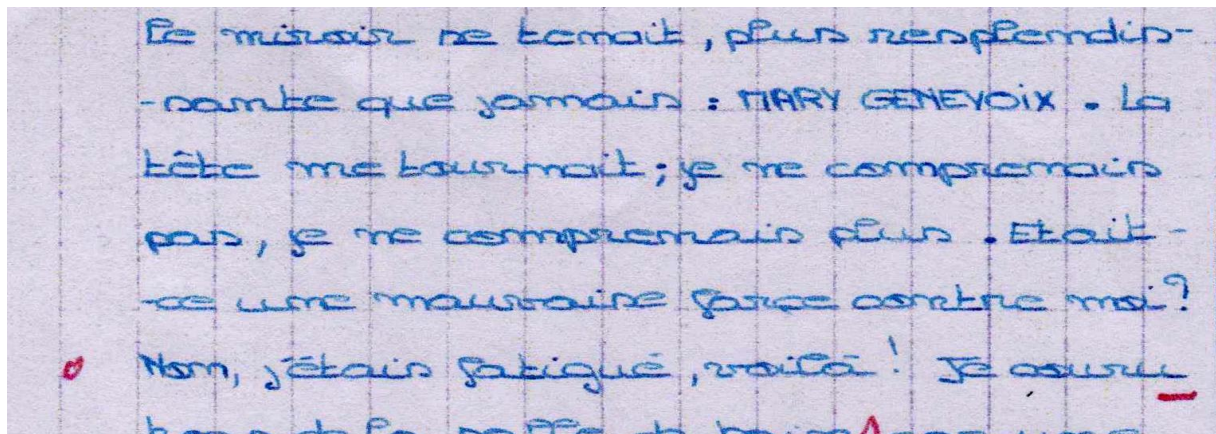 le miroir se tenait, plus resplendis-
-sante que jamais : MARY GENEVOIX . La
tête me tournait ; je ne comprenais
pas, je ne comprenais plus . Etait -
-ce une mauvaise farce contre moi ?
Non, j'étais fatigué, voilà ! Je couru
hors de la salle de bains